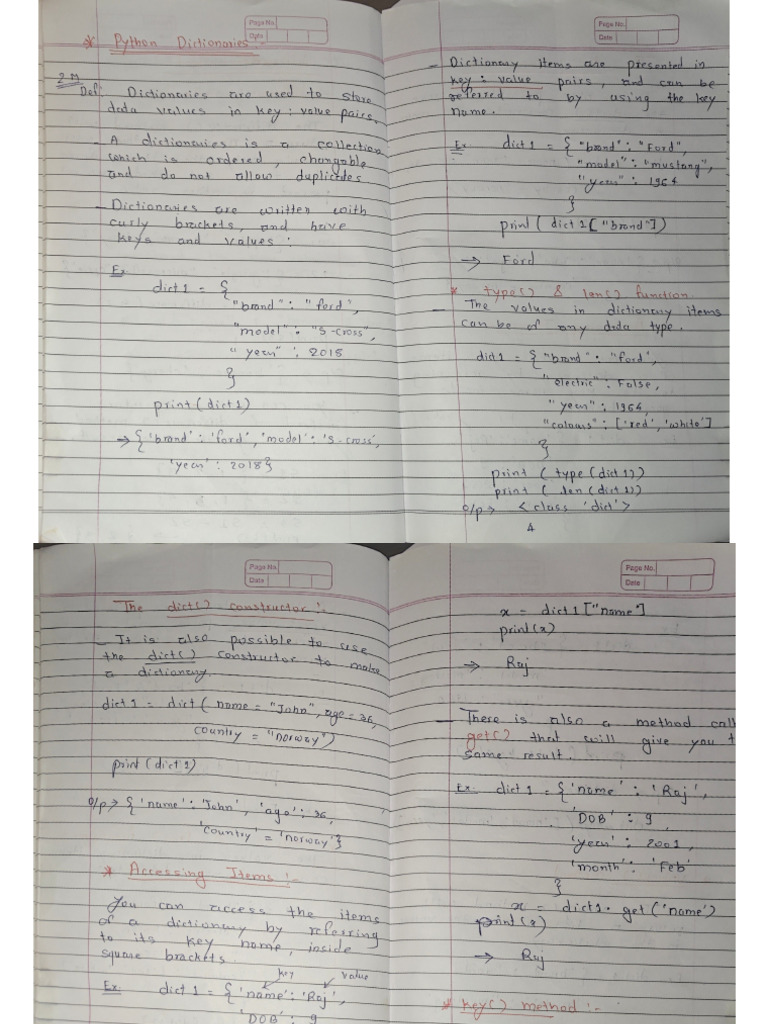 Page No.
Date
* Python Dictionaries :-
2M
Def: Dictionaries are used to store
data values in key : value pairs.
- A dictionaries is a collection
which is ordered, changable
and do not allow duplicates
- Dictionaries are written with
curly brackets, and have
keys and values :
Ex
dict 1 = {
"brand" : "ford",
"model" : "S-cross",
"year" : 2018
}
print (dict 1)
→ {'brand' : 'ford', 'model' : 's-cross',
'year' : 2018}
Page No.
Date
- Dictionary Items are presented in
key : value pairs, and can be
referred to by using the key
name.
Ex dict 1 = { "brand" : "Ford",
"model" : "mustang",
"year" : 1964
}
print ( dict 1 [ "brand"] )
→ Ford
* type() & len() function
- The values in dictionary items
can be of any data type.
dict 1 = { "brand" : "ford",
"electric" : False,
"year" : 1964,
"colours" : ['red', 'white']
}
print ( type (dict 1))
print ( len (dict 1))
o/p → < class 'dict' >
4
Page No.
Date
The dict() constructor :-
- It is also possible to use
the dict() constructor to make
a dictionary.
dict 1 = dict ( name = "John", age = 36,
country = "norway")
print (dict 1)
o/p → { 'name' : 'John', 'age' : 36,
'country' = 'norway'}
* Accessing Items :-
You can access the items
of a dictionary by referring
to its key name, inside
square brackets.
key value
Ex: dict 1 = { 'name' : 'Raj',
'DOB' : 9
Page No.
Date
x = dict 1 ["name"]
print(x)
→ Raj
- There is also a method call
get() that will give you t
same result.
Ex: dict 1 = { 'name' : 'Raj',
'DOB' : 9,
'year' : 2001,
'month' : 'Feb'
}
x = dict 1. get ('name')
print (x)
→ Raj
* key() method :-